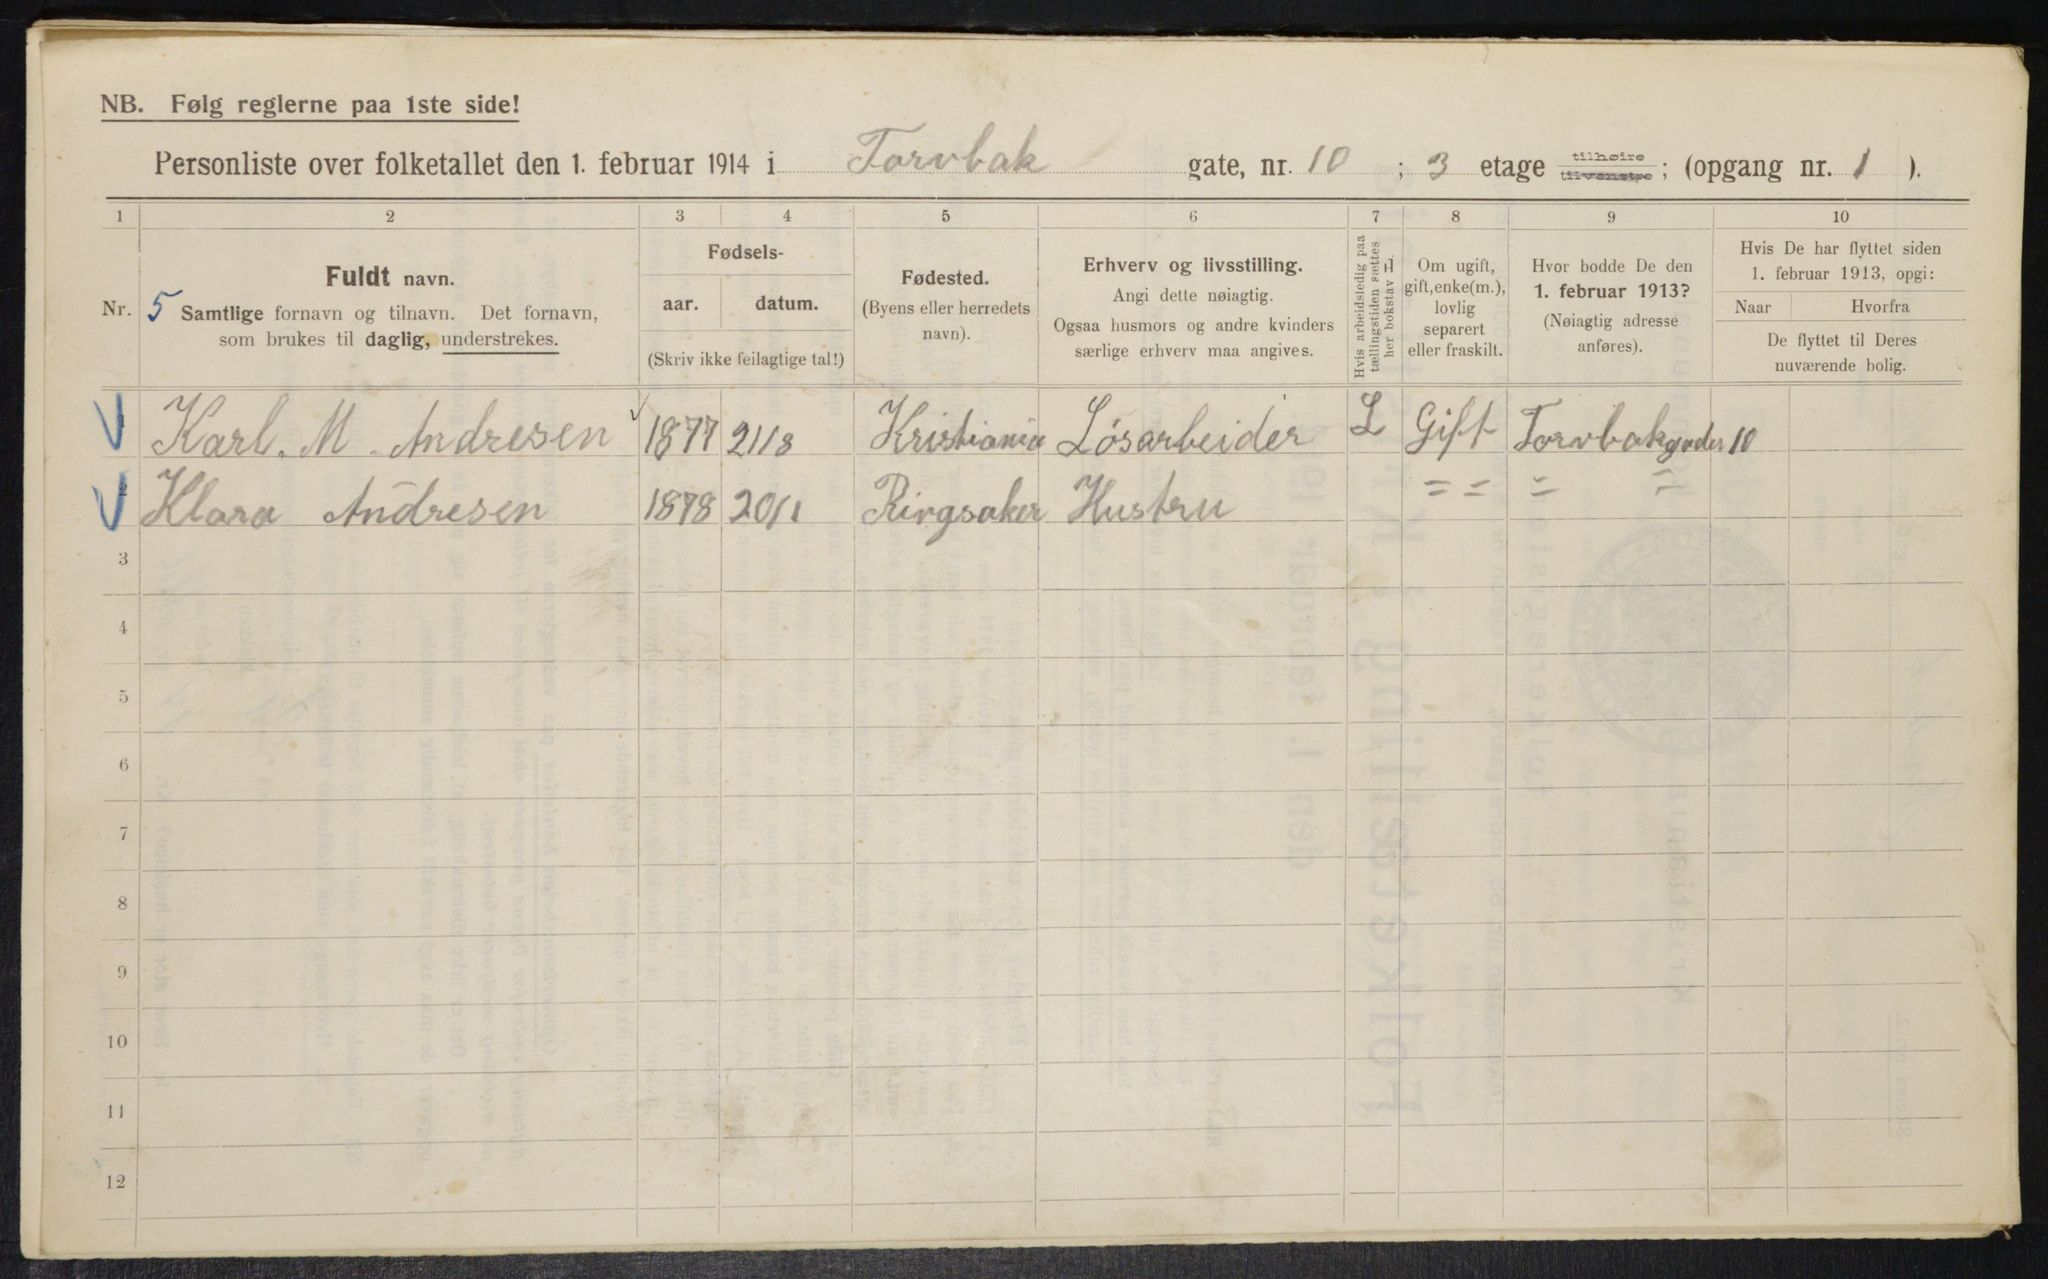 NB. Følg reglerne paa 1ste side!
Personliste over folketallet den 1. februar 1914 i Torvbak gate, nr. 10 ; 3 etage tilhøire tilvenstre ; (opgang nr. 1 ).
1 2 3 4 5 6 7 8 9 10
Nr. 5
Fuldt navn.
Samtlige fornavn og tilnavn. Det fornavn,
som brukes til daglig, understrekes.
Fødsels-
aar. datum.
(Skriv ikke feilagtige tal!)
Fødested.
(Byens eller herredets
navn).
Erhverv og livsstilling.
Angi dette nøiagtig.
Ogsaa husmors og andre kvinders
særlige erhverv maa angives.
Hvis arbeidsledig paa
tællingstiden sættes
her bokstav L
Om ugift,
gift, enke(m.),
lovlig
separert
eller fraskilt.
Hvor bodde De den
1. februar 1913?
(Nøiagtig adresse
anføres).
Hvis De har flyttet siden
1. februar 1913, opgi:
Naar Hvorfra
De flyttet til Deres
nuværende bolig.
Karl. M. Andresen 1877 21/8 Kristiania Løsarbeider L Gift Torvbakgaden 10
2 Klara Andresen 1878 20/1 Ringsaker Hustru = = = =
3
4
5
6
7
8
9
10
11
12